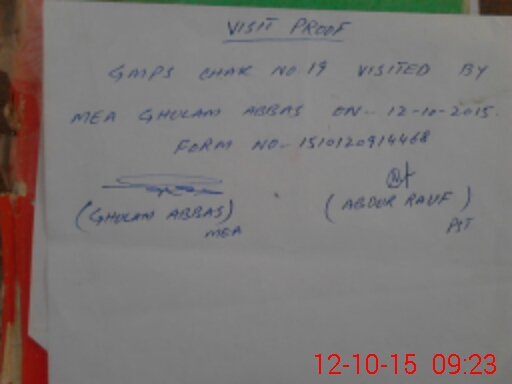 VISIT PROOF
GMPS CHAK NO. 19 VISITED BY
MEA GHULAM ABBAS ON- 12-10-2015.
FORM NO- 1510120914468
(GHULAM ABBAS)
MEA
(ABDUR RAUF)
PST
12-10-15 09:23